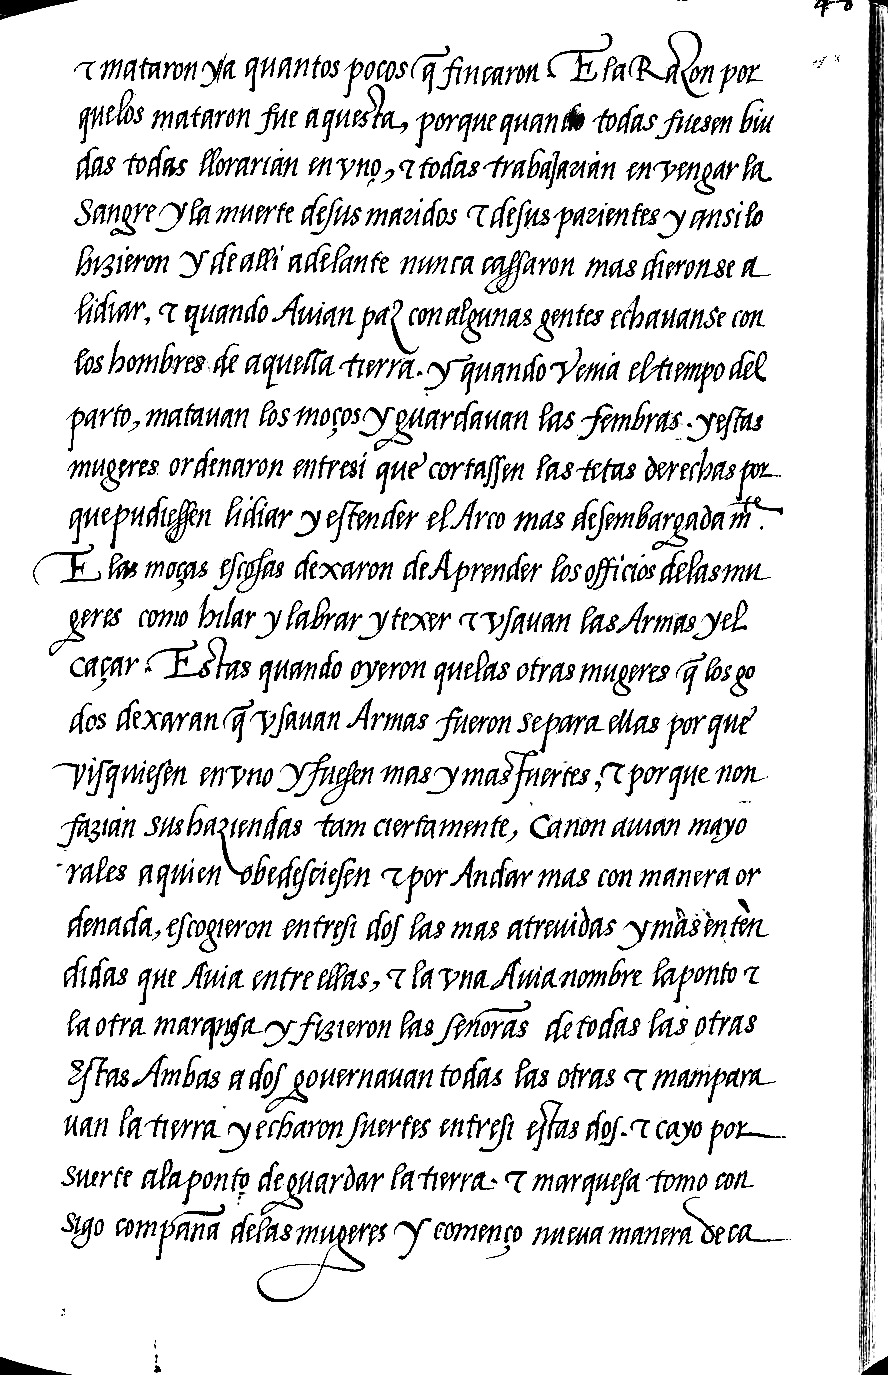 48
τ mataron ya quantos pocos q̃ fincaron. E la Razon por
que los mataron fue aquesta, porque quando todas fuesen biu
das todas llorarian en vno, τ todas trabajarian en vengar la
Sangre y la muerte de sus maridos τ de sus parientes y ansi lo
hizieron y de alli adelante nunca cassaron mas dieronse a
lidiar, τ quando Auian paz con algunas gentes echauanse con
los hombres de aquella tierra. y quando Venia el tiempo del
parto, matauan los moços y guardauan las fembras. y estas
mugeres ordenaron entresi que cortassen las tetas derechas por
que pudiessen lidiar y estender el Arco mas desembargadamte.
E las moças escosas dexaron de Aprender los officios de las mu
geres como hilar y labrar y texer τ vsauan las Armas y el
caçar. Estas quando oyeron que las otras mugeres q̃ los go
dos dexaran q̃ vsauan Armas fueron se para ellas por que
visquiesen en vno y fuesen mas y mas fuertes, τ por que non
fazian sus haziendas tam ciertamente, Ca non auian mayo
rales a quien obedesciesen τ por Andar mas con manera or
denada, escogieron entresi dos las mas atreuidas y mas enten
didas que Auia entre ellas, τ la vna Auia nombre laponto τ
la otra marquesa y fizieron las señoras de todas las otras
Estas Ambas a dos gouernauan todas las otras τ mampara
uan la tierra y echaron suertes entresi estas dos. τ cayo por
suerte a laponto de guardar la tierra. τ marquesa tomo con
sigo compaña de las mugeres y començo nueua manera de ca